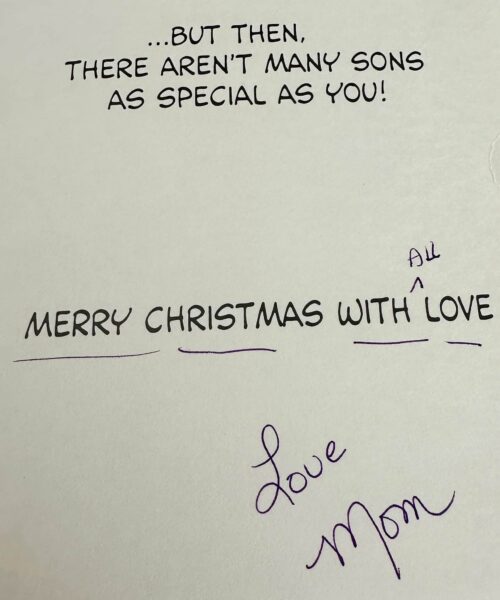 ...BUT THEN,
THERE AREN'T MANY SONS
AS SPECIAL AS YOU!
ALL
^
MERRY CHRISTMAS WITH LOVE
Love
Mom